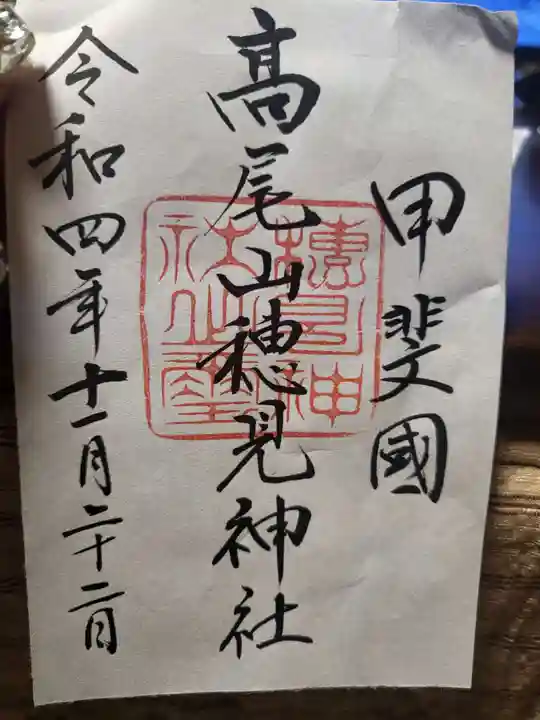 甲斐國
高尾山穂見神社
令和四年十一月二十二日
穂見神
社之璽